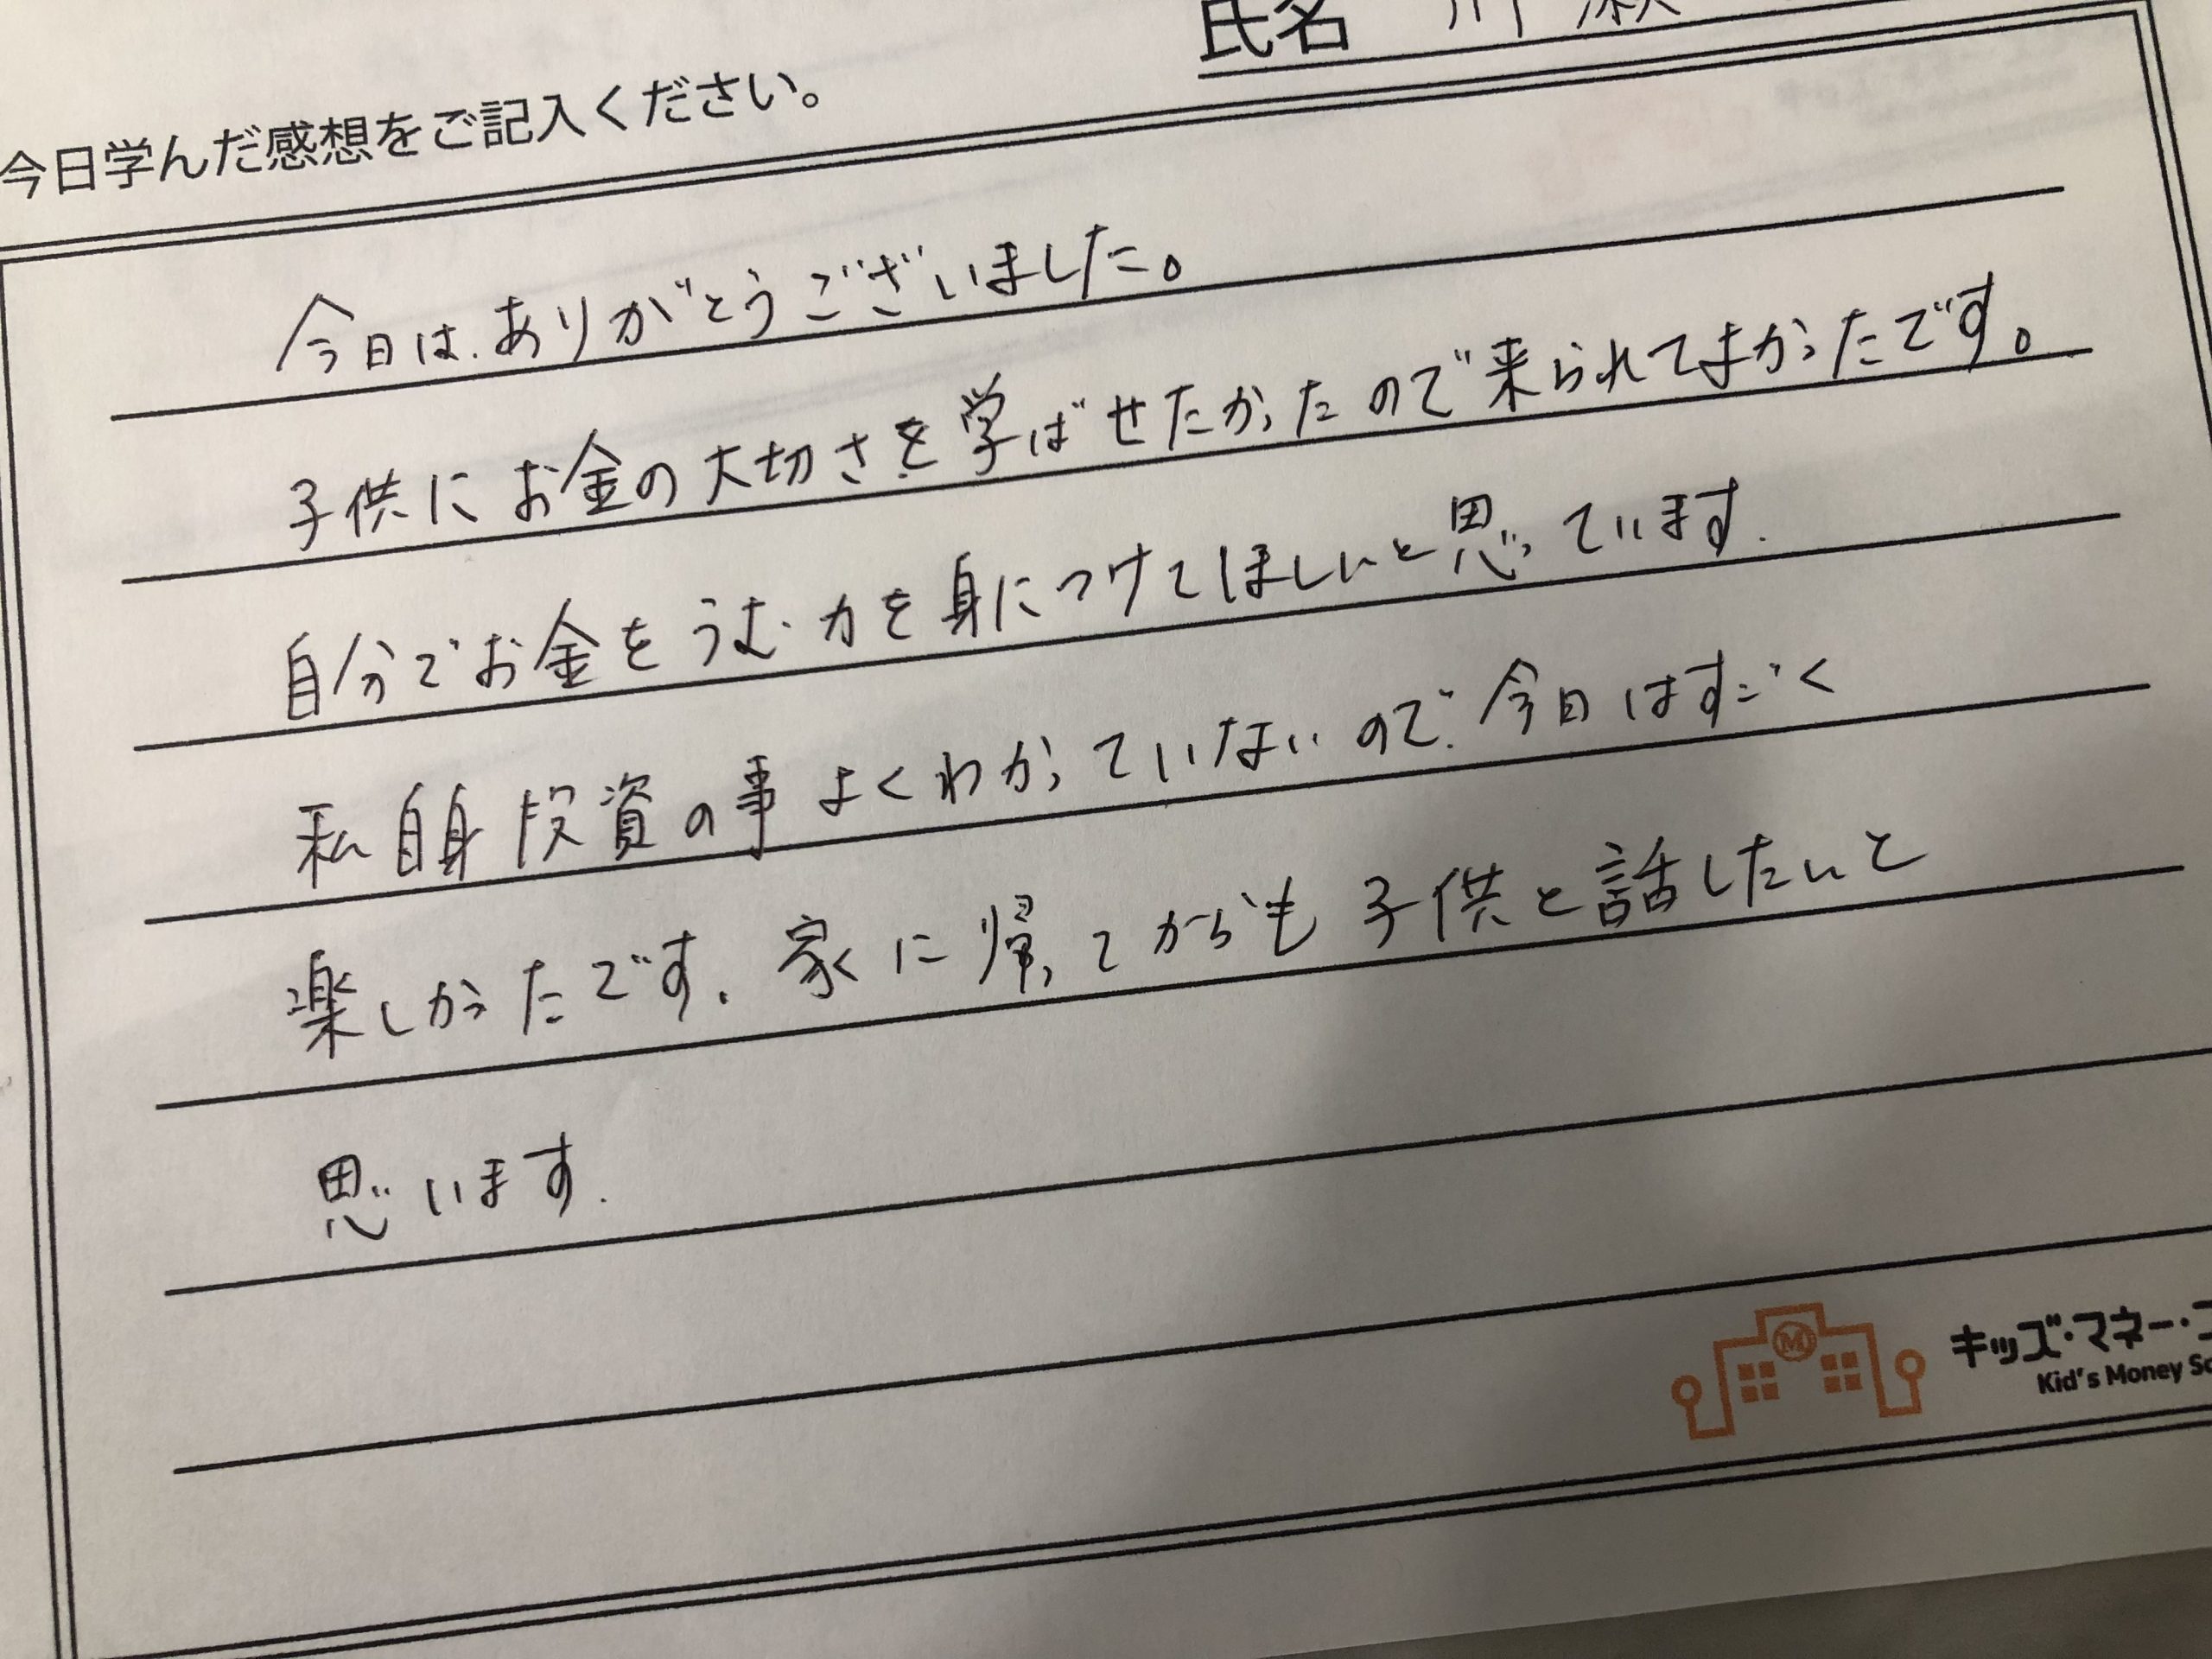 氏名
今日学んだ感想をご記入ください。
今日は、ありがとうございました。
子供にお金の大切さを学ばせたかったので来られてよかったです。
自分でお金をうむ力を身につけてほしいと思っています.
私自身投資の事よくわかっていないので、今日はすごく
楽しかったです。家に帰ってからも子供と話したいと
思います.
M
キッズ・マネー・
Kid's Money